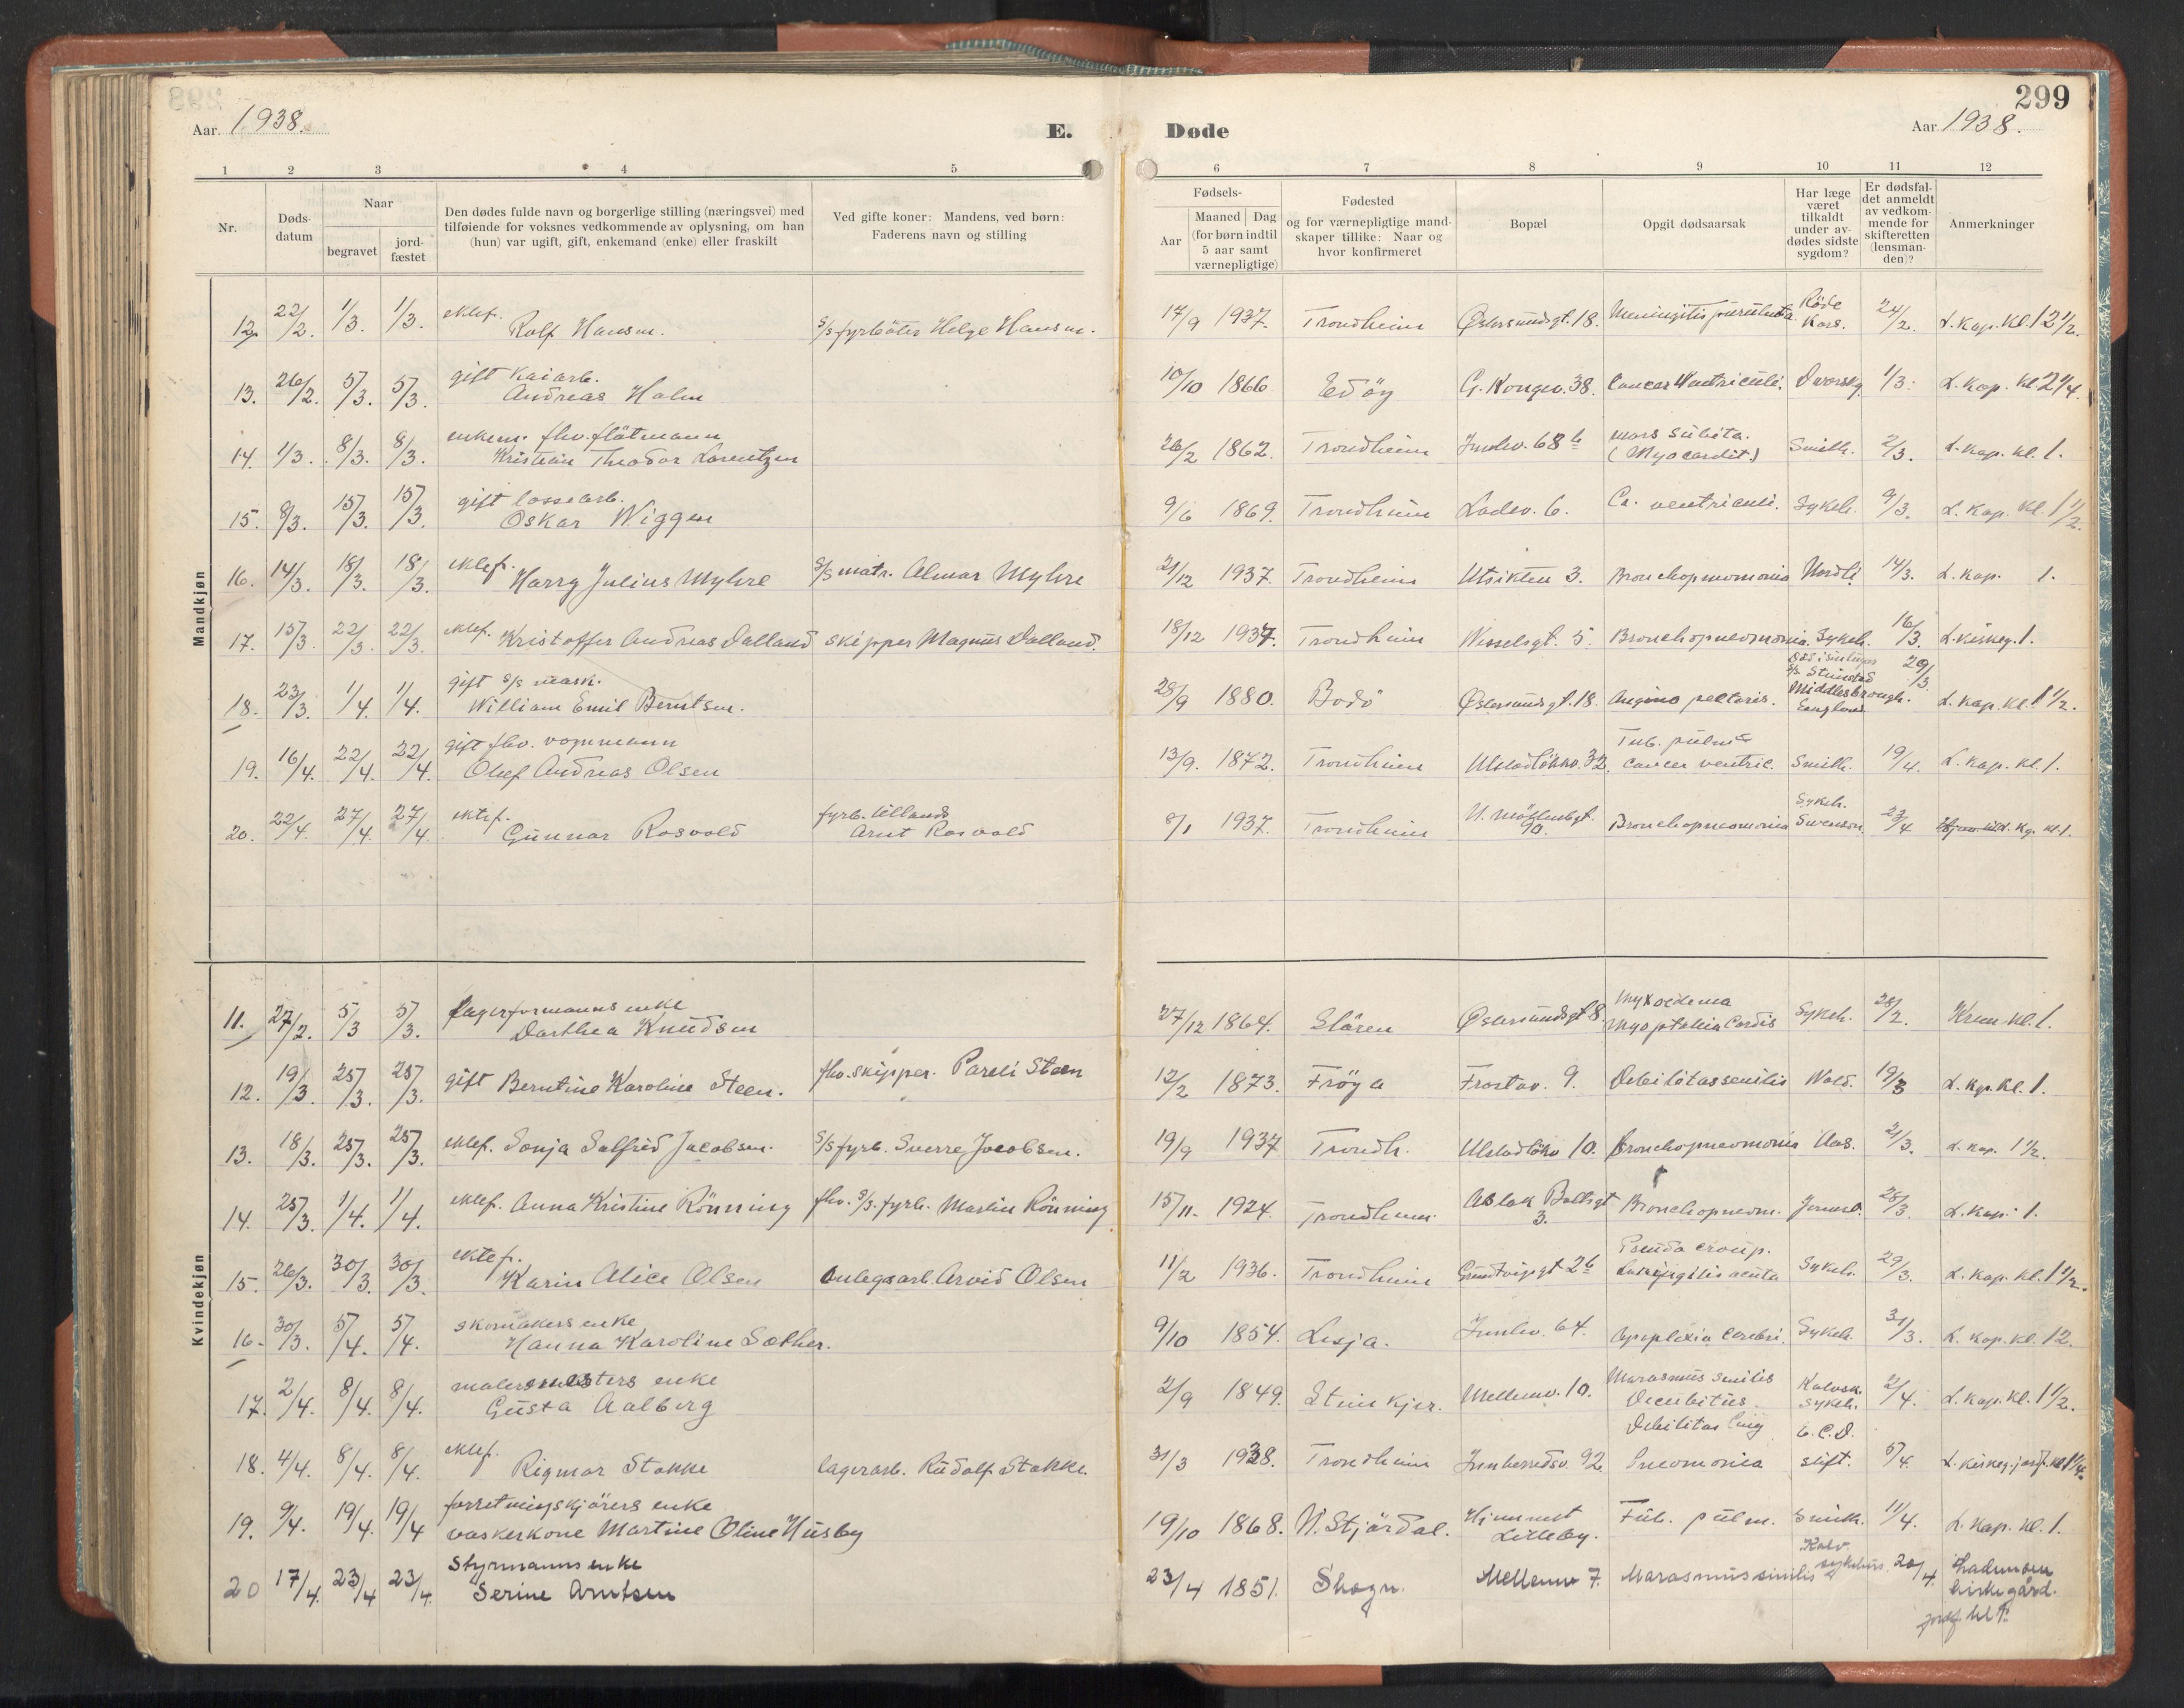 299
Aar 1938.
E. Døde
Aar 1938.
1 2 3 4 5 6 7 8 9 10 11 12
Nr.
Døds-
datum
Naar
begravet
jord-
fæstet
Den dødes fulde navn og borgerlige stilling (næringsvei) med
tilføiende for voksnes vedkommende av oplysning, om han
(hun) var ugift, gift, enkemand (enke) eller fraskilt
Ved gifte koner: Mandens, ved børn:
Faderens navn og stilling
Fødsels-
Aar
Maaned Dag
(for børn indtil
5 aar samt
værnepligtige)
Fødested
og for værnepligtige mand-
skaper tillike: Naar og
hvor konfirmeret
Bopæl
Opgit dødsaarsak
Har læge
været
tilkaldt
under av-
dødes sidste
sygdom?
Er dødsfal-
det anmeldt
av vedkom-
mende for
skifteretten
(lensman-
den)?
Anmerkninger
Mandkjøn
12. 22/2. 1/3. 1/3. ektef. Rolf Hansen. s/s fyrbøter Helge Hansen. 17/9 1937. Trondheim Østersundsgt. 18. Meningitis purulenta. Röde Kors. 24/2. L. Kap. Kl. 12 1/2.
13. 26/2. 5/3. 5/3. gift kaiarb. Andreas Holm 10/10 1866 Edöy G. Kongev. 38. Cancer Ventriculi. 1/3. L. Kap. Kl 2 1/4.
14. 1/3. 8/3. 8/3. enkem. fhv. flötmann Kristian Theodor Lorentzen 26/2 1862. Trondheim Innhv. 68 b mors subita. (Myocardit.) Smith. 2/3. L. Kap. Kl. 1.
15. 8/3. 15/3. 15/3. gift lossearb. Oskar Wiggen 9/6 1869. Trondheim Ladev. 6. Ca. ventriculi. Sykeh. 9/3. L. Kap. Kl. 1 1/2.
16. 14/3. 18/3. 18/3. ektef. Harry Julius Myhre s/s matr. Almar Myhre 21/12 1937. Trondheim Utsikten 3. Bronchopneumonia Nordli 14/3. L. Kap. 1.
17. 15/3 22/3. 22/3. ektef. Kristoffer Andreas Dalland skipper Magnus Dalland. 18/12 1937. Trondheim Wesselsgt. 5. Bronchopneumonia. Sykeh. 16/3. L. kirkeg. 1.
18. 23/3. 1/4. 1/4. gift s/s mask. William Emil Berntsen. 28/9 1880. Bodö Østersundsgt. 18. Angina pectoris. Middlesbrough. England 29/3. L. Kap. Kl. 1 1/2.
19. 16/4. 22/4. 22/4. gift fhv. vognmann Oluf Andreas Olsen 13/9. 1872. Trondheim Ulstadlökkv. 32. Tub. pulm & cancer ventric. Smith. 19/4. L. Kap. Kl. 1.
20. 22/4. 27/4. 27/4. ektef. Gunnar Rosvold fyrb. Arnt Rosvold 8/1 1937. Trondheim N. Möllenbgt. 90. Bronchopneumonia Sykeh. Swenson. 23/4 L. Kg. Kl. 1.
Kvindekjøn
11. 27/2. 5/3 5/3. Lagerformanns enke Dorthea Knudsen 27/12 1864. Stören Østersundsgt 8. Myxoedema Cordis Sykeh. 28/2. Krem. Kl. 1.
12. 19/3. 25/3. 25/3. gift Berntine Karoline Steen. fhv. skipper. Pareli Steen 12/2 1873. Fröya Frostav. 9. Debilitas senilis Wold. 19/3 L. Kp. Kl. 1.
13. 18/3. 25/3. 25/3. ektef. Sonja Solfrid Jacobsen. s/s fyrb. Sverre Jacobsen. 19/9 1937 Trondh. Ulstadlökv 10. Bronchopneumonia Aas. 21/3. L. Kap. 1 1/2.
14. 25/3. 1/4. 1/4. ektef. Anna Kristine Rönning fhv. s/s. fyrb. Martin Rönning 15/11. 1924. Trondheim. Aslak Boltsgt 3. Bronchopneum. 28/3. L. Kap. 1.
15. 26/3. 30/3. 30/3. ektef. Karin Alice Olsen anlegsarb. Arvid Olsen 11/2 1936. Trondheim Grundtvigsgt 26 Pseudo croup. Laryngitis acuta Sykeh. 29/3. L. Kap. Kl. 1 1/2.
16. 30/3. 5/4. 5/4. skomakers enke Hanna Karoline Sæther. 9/10 1854. Lesja. Innhv. 64. Apoplexia Cerebri. Sykeh. 31/3. L. Kap. Kl. 12.
17. 2/4. 8/4. 8/4. malermesters enke Gusta Aalberg 2/9 1849. Steinkjer. Mellemv. 10. Marasmus senilis Decubitus. Kalvsk. sykeh. 2/4. L. Kap. Kl. 1 1/2.
18. 4/4. 8/4. 8/4. ektef. Rigmor Stokke lagerarb. Rudolf Stokke. 31/3 1938. Trondheim Innherredsv. 92. Debilitas Cong Pneomonia E. C. D. stift. 5/4. L. kirkeg. jordf. kl 1 1/4.
19. 9/4. 19/4. 19/4 forretningskjörers enke vaskerkone Martine Oline Husby 19/10 1868. N. Stjördal. Lilleby. Tub. pulm. Smith. 11/4. L. Kap. Kl. 1.
20 17/4. 23/4 23/4. Styrmanns enke Serine Arntsen 23/4 1851. Skogn. Mellemv 7. Marasmus senilis Kalv. sykehus 20/4. Lademoen kirkegård. jordf. kl 1.